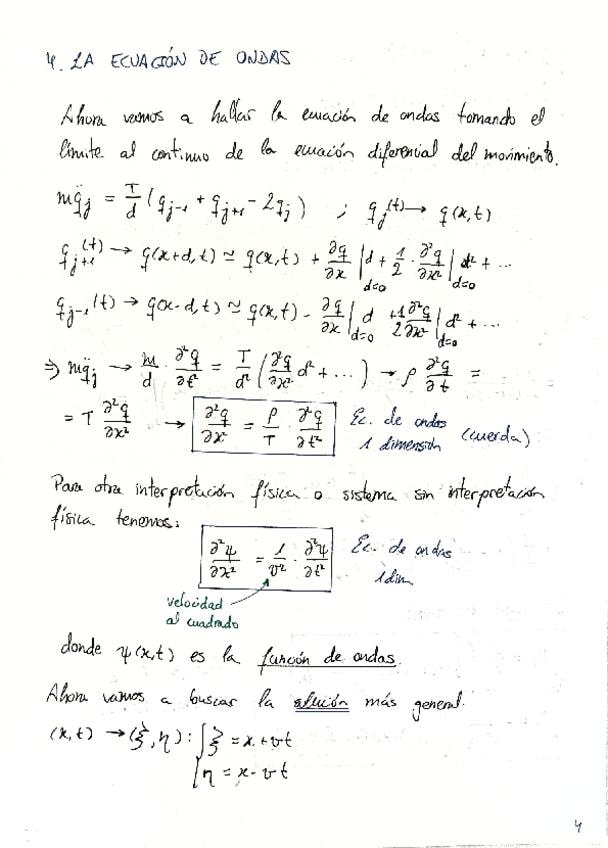 4. LA ECUACIÓN DE ONDAS
Ahora vamos a hallar la ecuación de ondas tomando el
límite al continuo de la ecuación diferencial del movimiento.
mq̈_j = T/d (q_{j-1} + q_{j+1} - 2q_j) ; q_j(t) → q(x,t)
q_{j+1}(t) → q(x+d,t) ≃ q(x,t) + ∂q/∂x |_{d=0} d + 1/2 · ∂²q/∂x² |_{d=0} d² + ...
q_{j-1}(t) → q(x-d,t) ≃ q(x,t) - ∂q/∂x |_{d=0} d + 1/2 ∂²q/∂x² |_{d=0} d² + ...
⇒ mq̈_j → m/d · ∂²q/∂t² = T/d² (∂²q/∂x² d² + ...) → ρ ∂²q/∂t =
= T ∂²q/∂x² → ∂²q/∂x² = ρ/T · ∂²q/∂t² Ec. de ondas
1 dimensión (cuerda)
Para otra interpretación física o sistema sin interpretación
física tenemos:
∂²ψ/∂x² = 1/v² · ∂²ψ/∂t² Ec. de ondas
1 dim
velocidad
al cuadrado
donde ψ(x,t) es la función de ondas.
Ahora vamos a buscar la solución más general.
(x,t) → (ξ,η) : { ξ = x + vt
η = x - vt
4